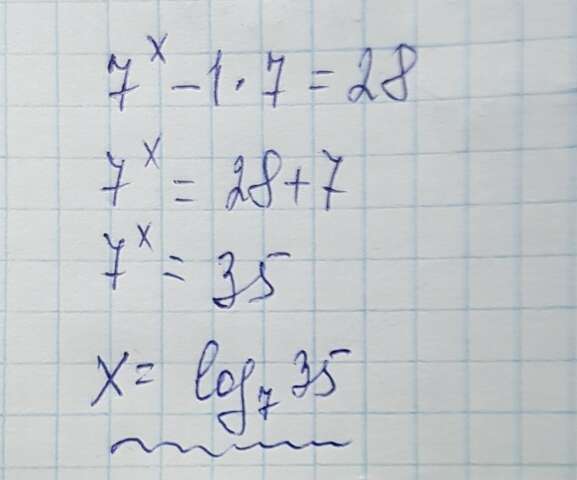 7ˣ - 1 · 7 = 28
7ˣ = 28 + 7
7ˣ = 35
x = log₇ 35